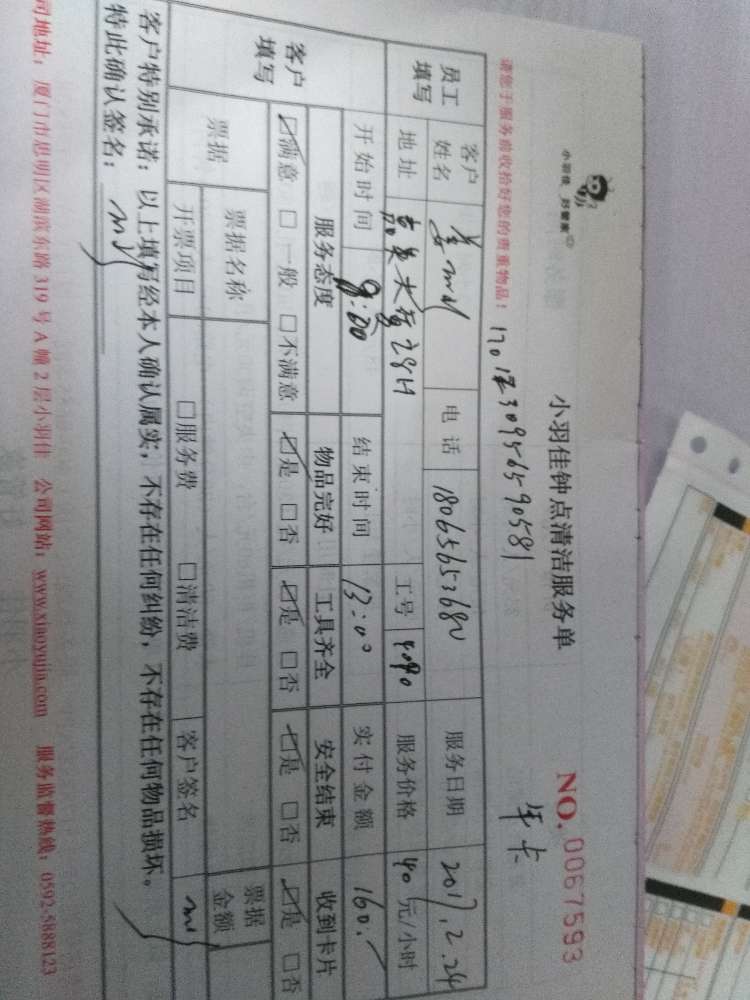 小羽佳 好管家
小羽佳钟点清洁服务单 NO.0067593
年卡
请您于服务前收拾好您的贵重物品:
员工填写 客户姓名 姜 电话 18065653682 服务日期 2017.2.24
地址 28H 工号 4090 服务价格 40元/小时
开始时间 9:00 结束时间 13:00 实付金额 160.-
客户填写 服务态度 物品完好 工具齐全 安全结束 收到卡片
☑满意 □一般 □不满意 ☑是 □否 ☑是 □否 ☑是 □否 ☑是 □否
票据 票据名称 票据金额
开票项目 □服务费 □清洁费 客户签名
客户特别承诺:以上填写经本人确认属实,不存在任何纠纷,不存在任何物品损坏。
特此确认签名:
司地址:厦门市思明区湖滨东路319号A幢2层小羽佳 公司网站:www.xiaoyujia.com 服务监督热线:0592-5888123